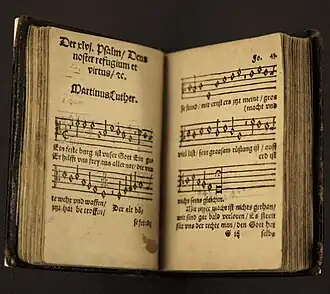 Der xlvj. Psalm / Deus
noster refugium et
virtus / ⁊c.
Martinus Luther.
Ein feste burg ist vnser Gott Ein gu
Er hilfft vns frey aus aller not / die vns
te wehr vnd waffen /
ytzt hat be troffen / Der alt bö
se feind
Fo. 43
se feind / mit ernst ers ytzt meint / gros
(macht vnd
viel list / sein grausam rüstung ist / auff
erd ist
nicht seins gleichen.
Mit vnser macht ist nichts gethan /
wir sind gar bald verloren / Es streit
fur vns der rechte man / den Gott hat
selbs